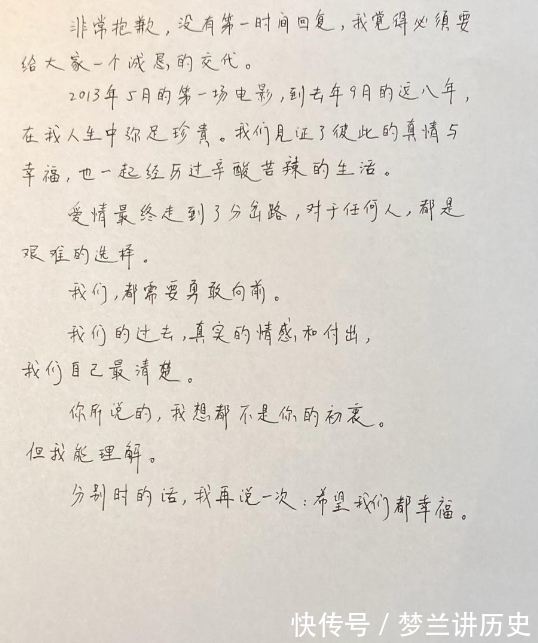 非常抱歉，没有第一时间回复，我觉得必须要
给大家一个诚恳的交代。
2013年5月的第一场电影，到去年9月的这八年，
在我人生中弥足珍贵。我们见证了彼此的真情与
幸福，也一起经历过辛酸苦辣的生活。
爱情最终走到了分岔路，对于任何人，都是
艰难的选择。
我们，都需要勇敢向前。
我们的过去，真实的情感和付出，
我们自己最清楚。
你所说的，我想都不是你的初衷。
但我能理解。
分别时的话，我再说一次：希望我们都幸福。
快传号 / 梦兰讲历史